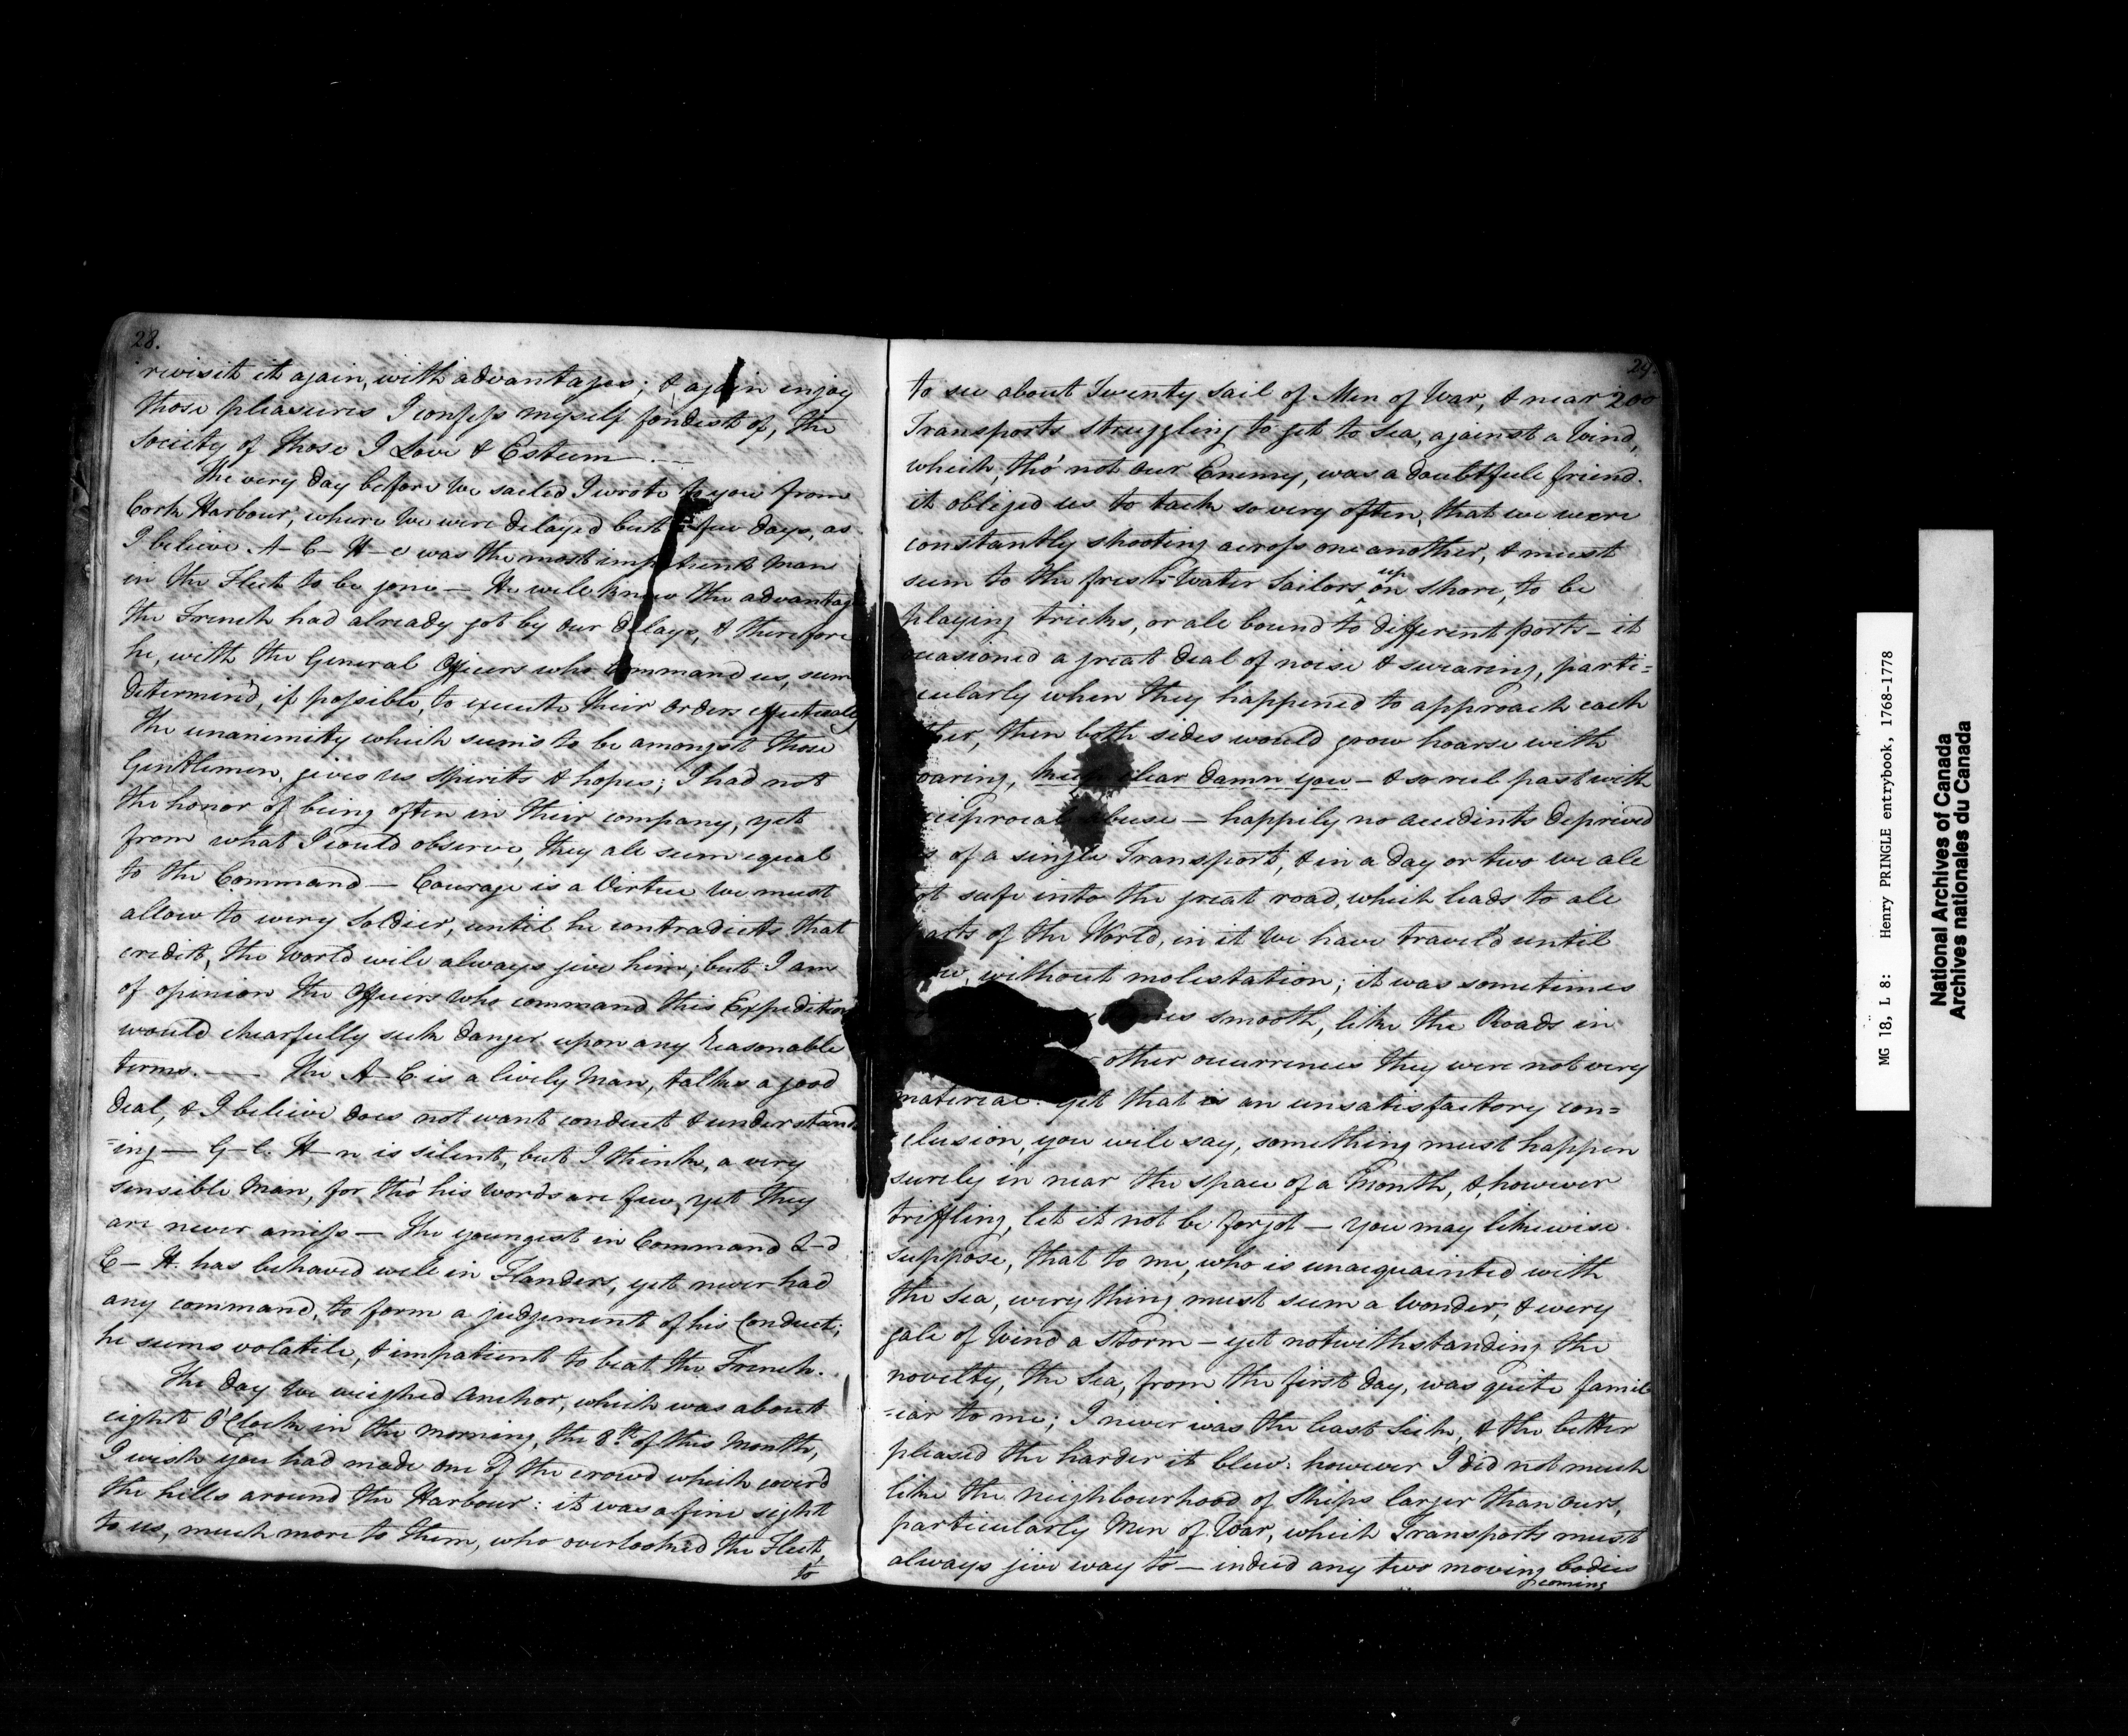 28.
revisit it again, with advantages; & again enjoy
those pleasures I confess myself fondest of, the
Society of those I Love & Esteem. —
The very day before We sailed I wrote to you from
Cork Harbour, where We were delayed but a few days, as
I believe A– C– H–e was the most impatient Man
in the Fleet to be gone — He well knew the advantage
the French had already got by our delays, & therefore
he, with the General Officers who command us, seem
determin'd, if possible, to execute their orders effectually
The unanimity which seems to be amongst those
Gentlemen, gives us spirits & hopes; I had not
the honor of being often in their company, yet
from what I could observe, they all seem equal
to the Command — Courage is a Virtue We must
allow to every Soldier, until he contradicts that
credit, the World will always give him; but I am
of opinion the Officers who command this Expedition
would chearfully seek danger upon any reasonable
terms. — The A–C is a lively Man, talks a good
deal, & I believe does not want conduct & understand
=ing — G–l. H–n is silent, but I think, a very
sensible Man, for tho' his words are few, yet they
are never amiss — The youngest in Command L–d
C– H. has behaved well in Flanders, yet never had
any command, to form a judgement of his Conduct;
he seems volatile, & impatient to beat the French.
The day We weighed Anchor, which was about
eight O'Clock in the morning, the 8th. of this Month,
I wish you had made one of the crowd which cover'd
the hills around the Harbour: it was a fine sight
to us, much more to them, who overlooked the Fleet,
to
29.
to see about Twenty Sail of Men of War, & near 200
Transports struggling to get to Sea, against a Wind,
which, tho' not our Enemy, was a doubtfull friend.
it obliged us to tack so very often, that we were
constantly shooting across one another, & must
seem to the fresh-Water Sailors up on shore, to be
playing tricks, or all bound to different ports — it
occasioned a great deal of noise & swearing, parti=
cularly when they happened to approach each
other, then both sides would grow hoarse with
roaring, keep clear damn you — & so reel past with
reciprocal abuse — happily no accidents deprived
us of a single Transport, & in a day or two we all
got safe into the great road, which leads to all
parts of the World, in it We have travel'd until
now, without molestation; it was sometimes
smooth, like the Roads in
other occurrences they were not very
material. Yet that is an unsatisfactory con=
clusion, you will say, something must happen
surely in near the space of a Month, &, however
triffling, let it not be forgot — You may likewise
suppose, that to me, who is unacquainted with
the Sea, every thing must seem a Wonder, & every
gale of Wind a Storm — yet notwithstanding the
novelty, the Sea, from the first day, was quite famil
=iar to me; I never was the least Sick, & the better
pleased the harder it blew. however I did not much
like the neighbourhood of Ships larger than ours,
particularly Men of War, which Transports must
always give way to — indeed any two moving bodies
coming
MG 18, L 8: Henry PRINGLE entrybook, 1768-1778
National Archives of Canada
Archives nationales du Canada